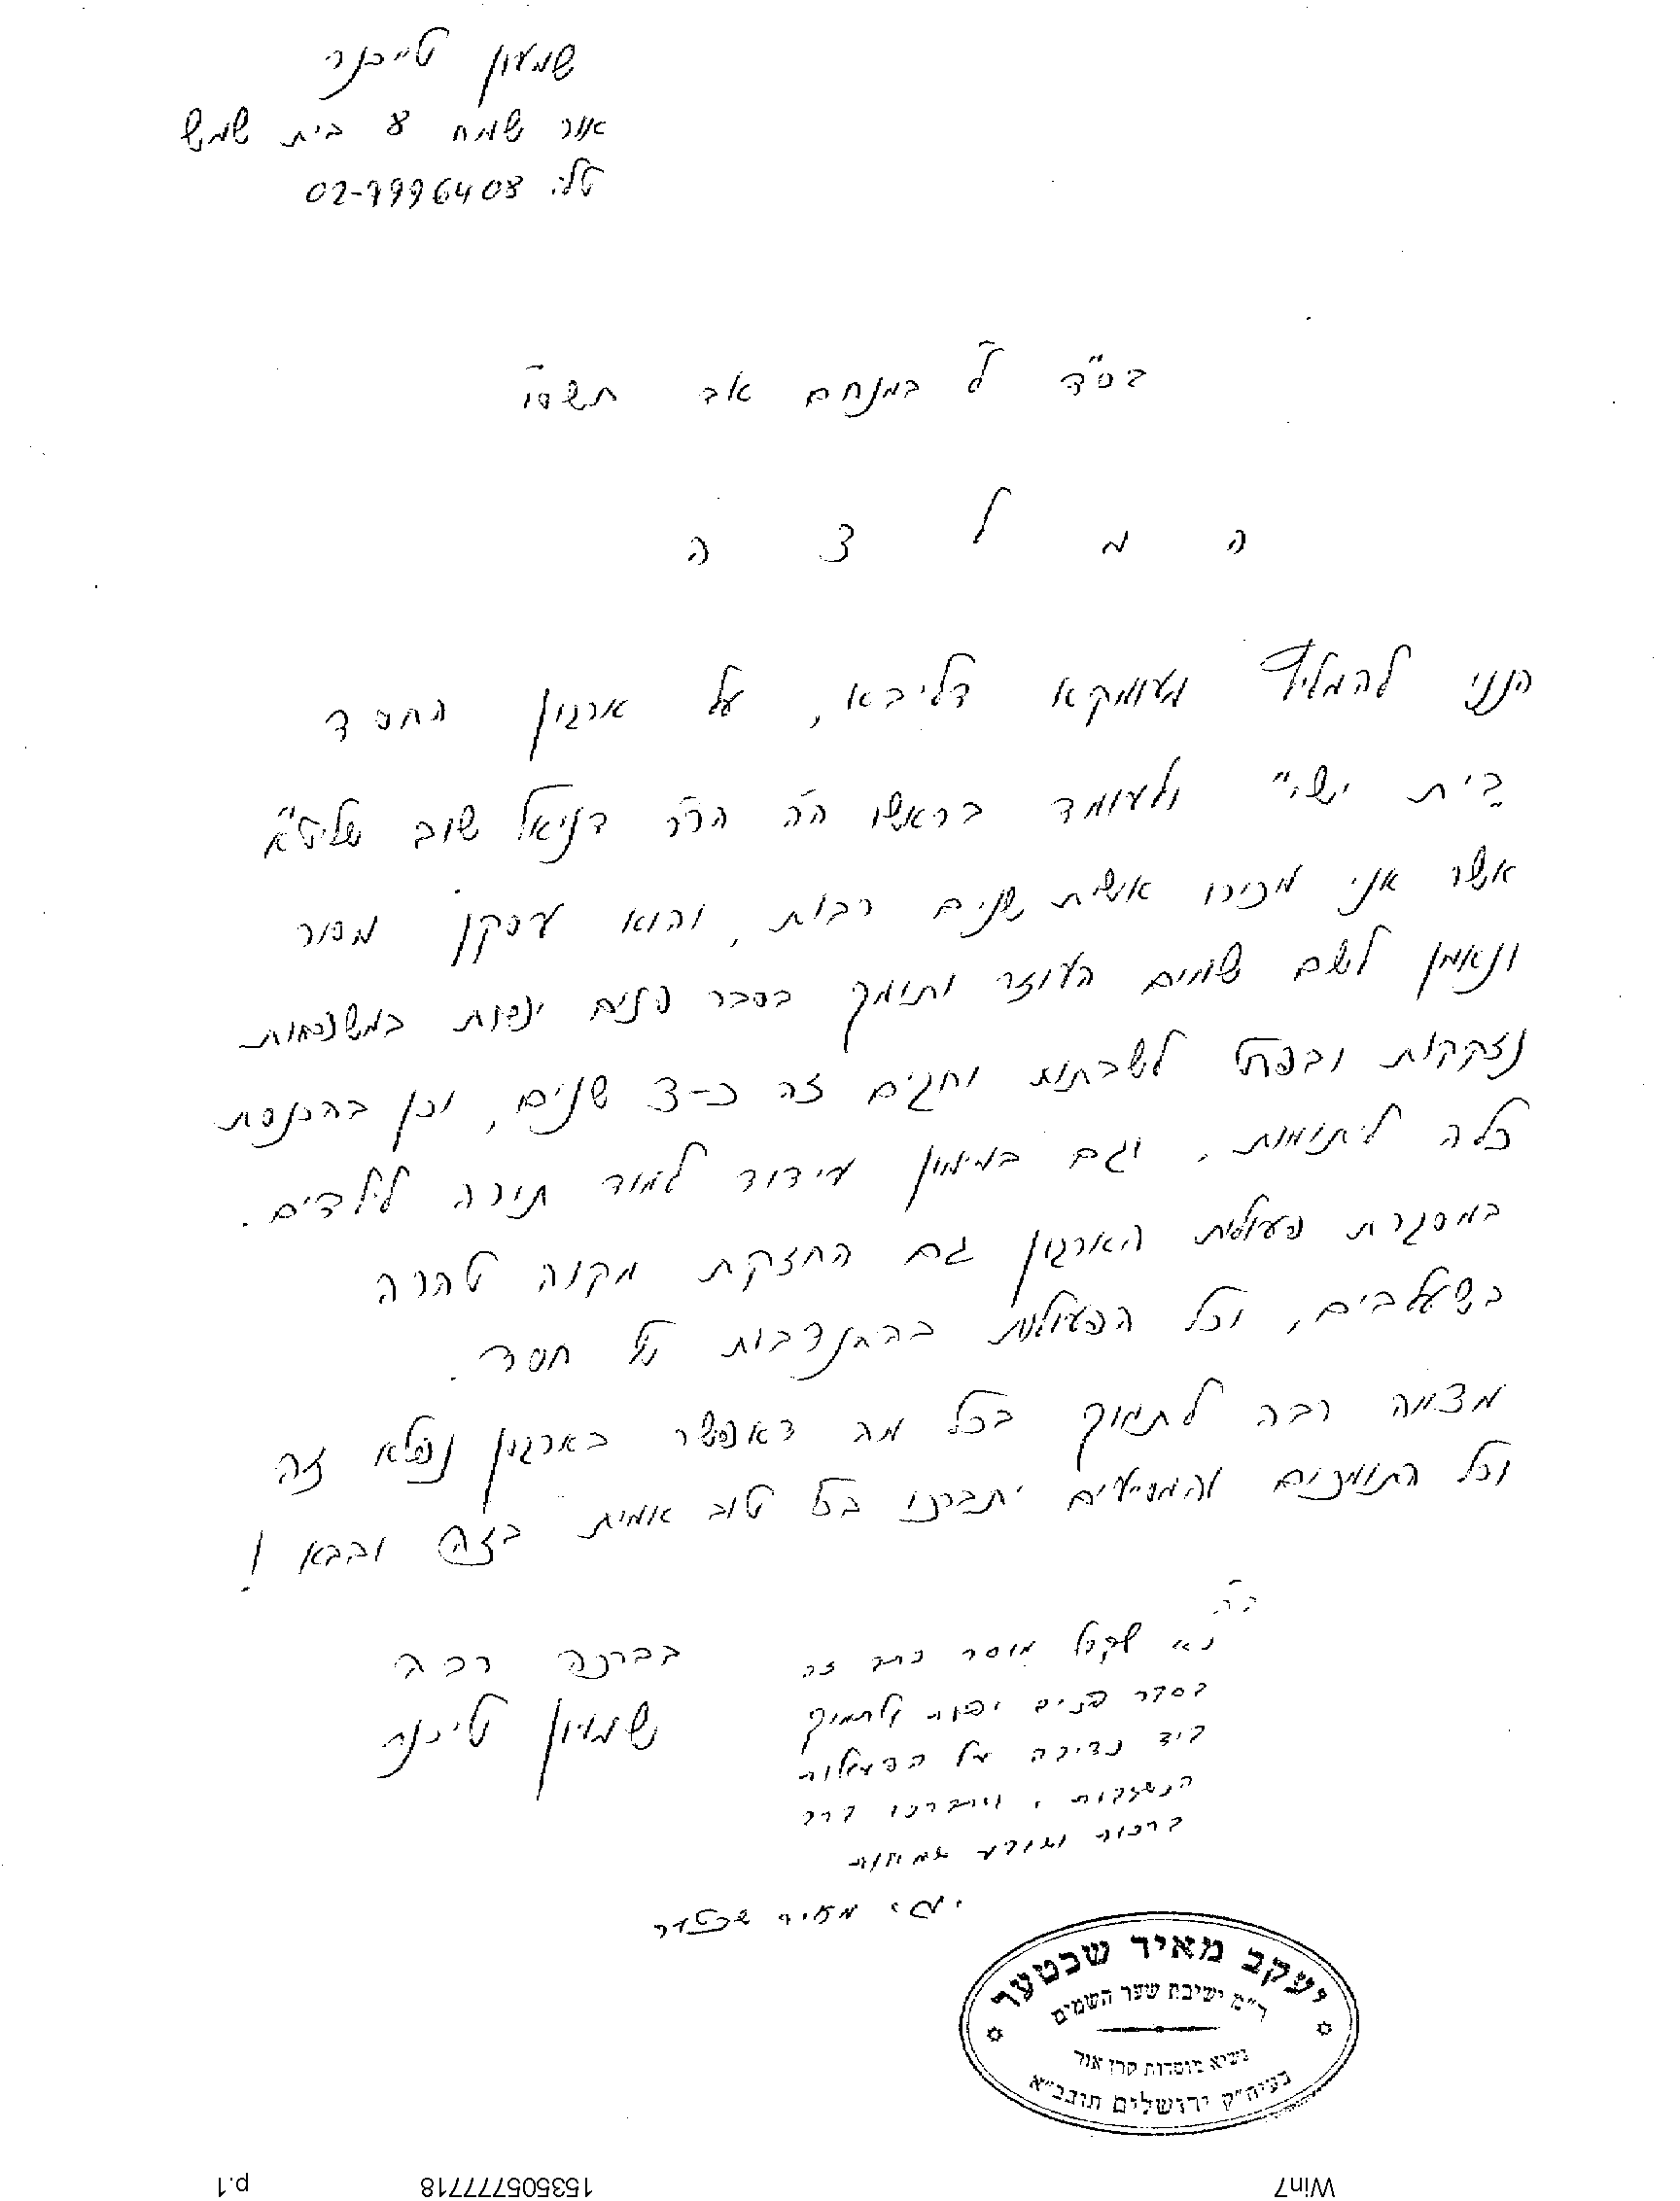 שמעון טייכנר
אור שמח 8 בית שמש
טל: 02-9996408
בס"ד ל' במנחם אב תשס"ו
ה מ ל צ ה
הנני להמליץ מעומקא דליבא, על ארגון החסד
"בית ישי" ולעומד בראשו ה"ה הר"ר דניאל שוב שליט"א
אשר אני מכירו אישית שנים רבות, והוא עסקן מסור
ונאמן לשם שמים העוזר ותומך בסבר פנים יפות במשפחות
נזקקות ובפרט לשבתות וחגים זה כ-3 שנים, וכן בהכנסת
כלה ליתומות, וגם במימון עידוד לימוד תורה לילדים.
במסגרת פעולות הארגון גם החזקת מקוה טהרה
בשעלבים, וכל הפעולות בהתנדבות של חסד.
מצווה רבה לתמוך בכל מה דאפשר בארגון נפלא זה
וכל התומכים והמסייעים יתברכו בכל טוב אמיתי בזה ובבא!
בברכה רבה
שמעון טייכנר
ב"ה
נא לקבל מוסר כתב זה
בסבר פנים יפות ולתמוך
ביד נדיבה על הפעולות
הנשגבות, ויתברכו בכל
ברכות ושובע שמחות
יעקב מאיר שכטער
יעקב מאיר שכטער
ר"מ ישיבת שער השמים
נשיא מוסדות קרן אור
בעיה"ק ירושלים תובב"א
Win7 15350577718 p.1